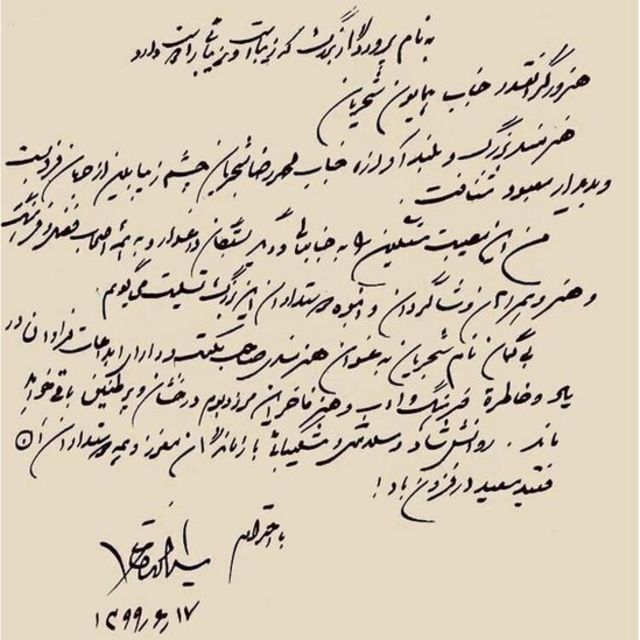 به نام پروردگار بزرگ که زیباست و زیبایی را دوست دارد
هنرور گرانقدر جناب همایون شجریان
هنرمند بزرگ و بلند آوازه جناب محمدرضا شجریان چشم زیبا بین از جهان فرو بست
و به دیدار معبود شتافت.
من این مصیبت سنگین را به جنابعالی و دیگر بستگان داغدار و به همه اصحاب فضل و فرهنگ
و هنر و همراهان و شاگردان و انبوه دوستداران این بزرگ تسلیت می‌گویم.
بی‌گمان نام شجریان به عنوان هنرمندی صاحب سبک و دارای ابداعات فراوان در
یاد و خاطرهٔ فرهنگ و ادب و هنر فاخر این مرز و بوم درخشان و پر طنین باقی خواهد
ماند. روانش شاد و سلامتی و شکیبائی بازماندگان معزز و همه دوستداران آن
فقید سعید در فزون باد!
با احترام
سید محمد خاتمی
۱۳۹۹,۷,۱۷